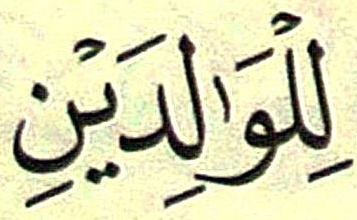 لِلْوَالِدَيْنِ